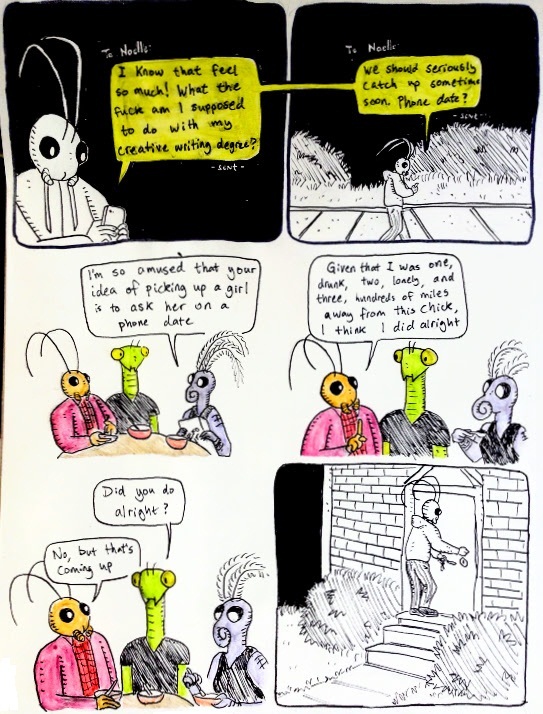 To Noelle:
I know that feel
so much! What the
fuck am I supposed
to do with my
creative writing degree?
- sent -
To Noelle:
We should seriously
catch up sometime
soon. Phone date?
- sent -
I'm so amused that your
idea of picking up a girl
is to ask her on a
phone date
Given that I was one,
drunk, two, lonely, and
three, hundreds of miles
away from this chick,
I think I did alright
Did you do
alright?
No, but that's
coming up